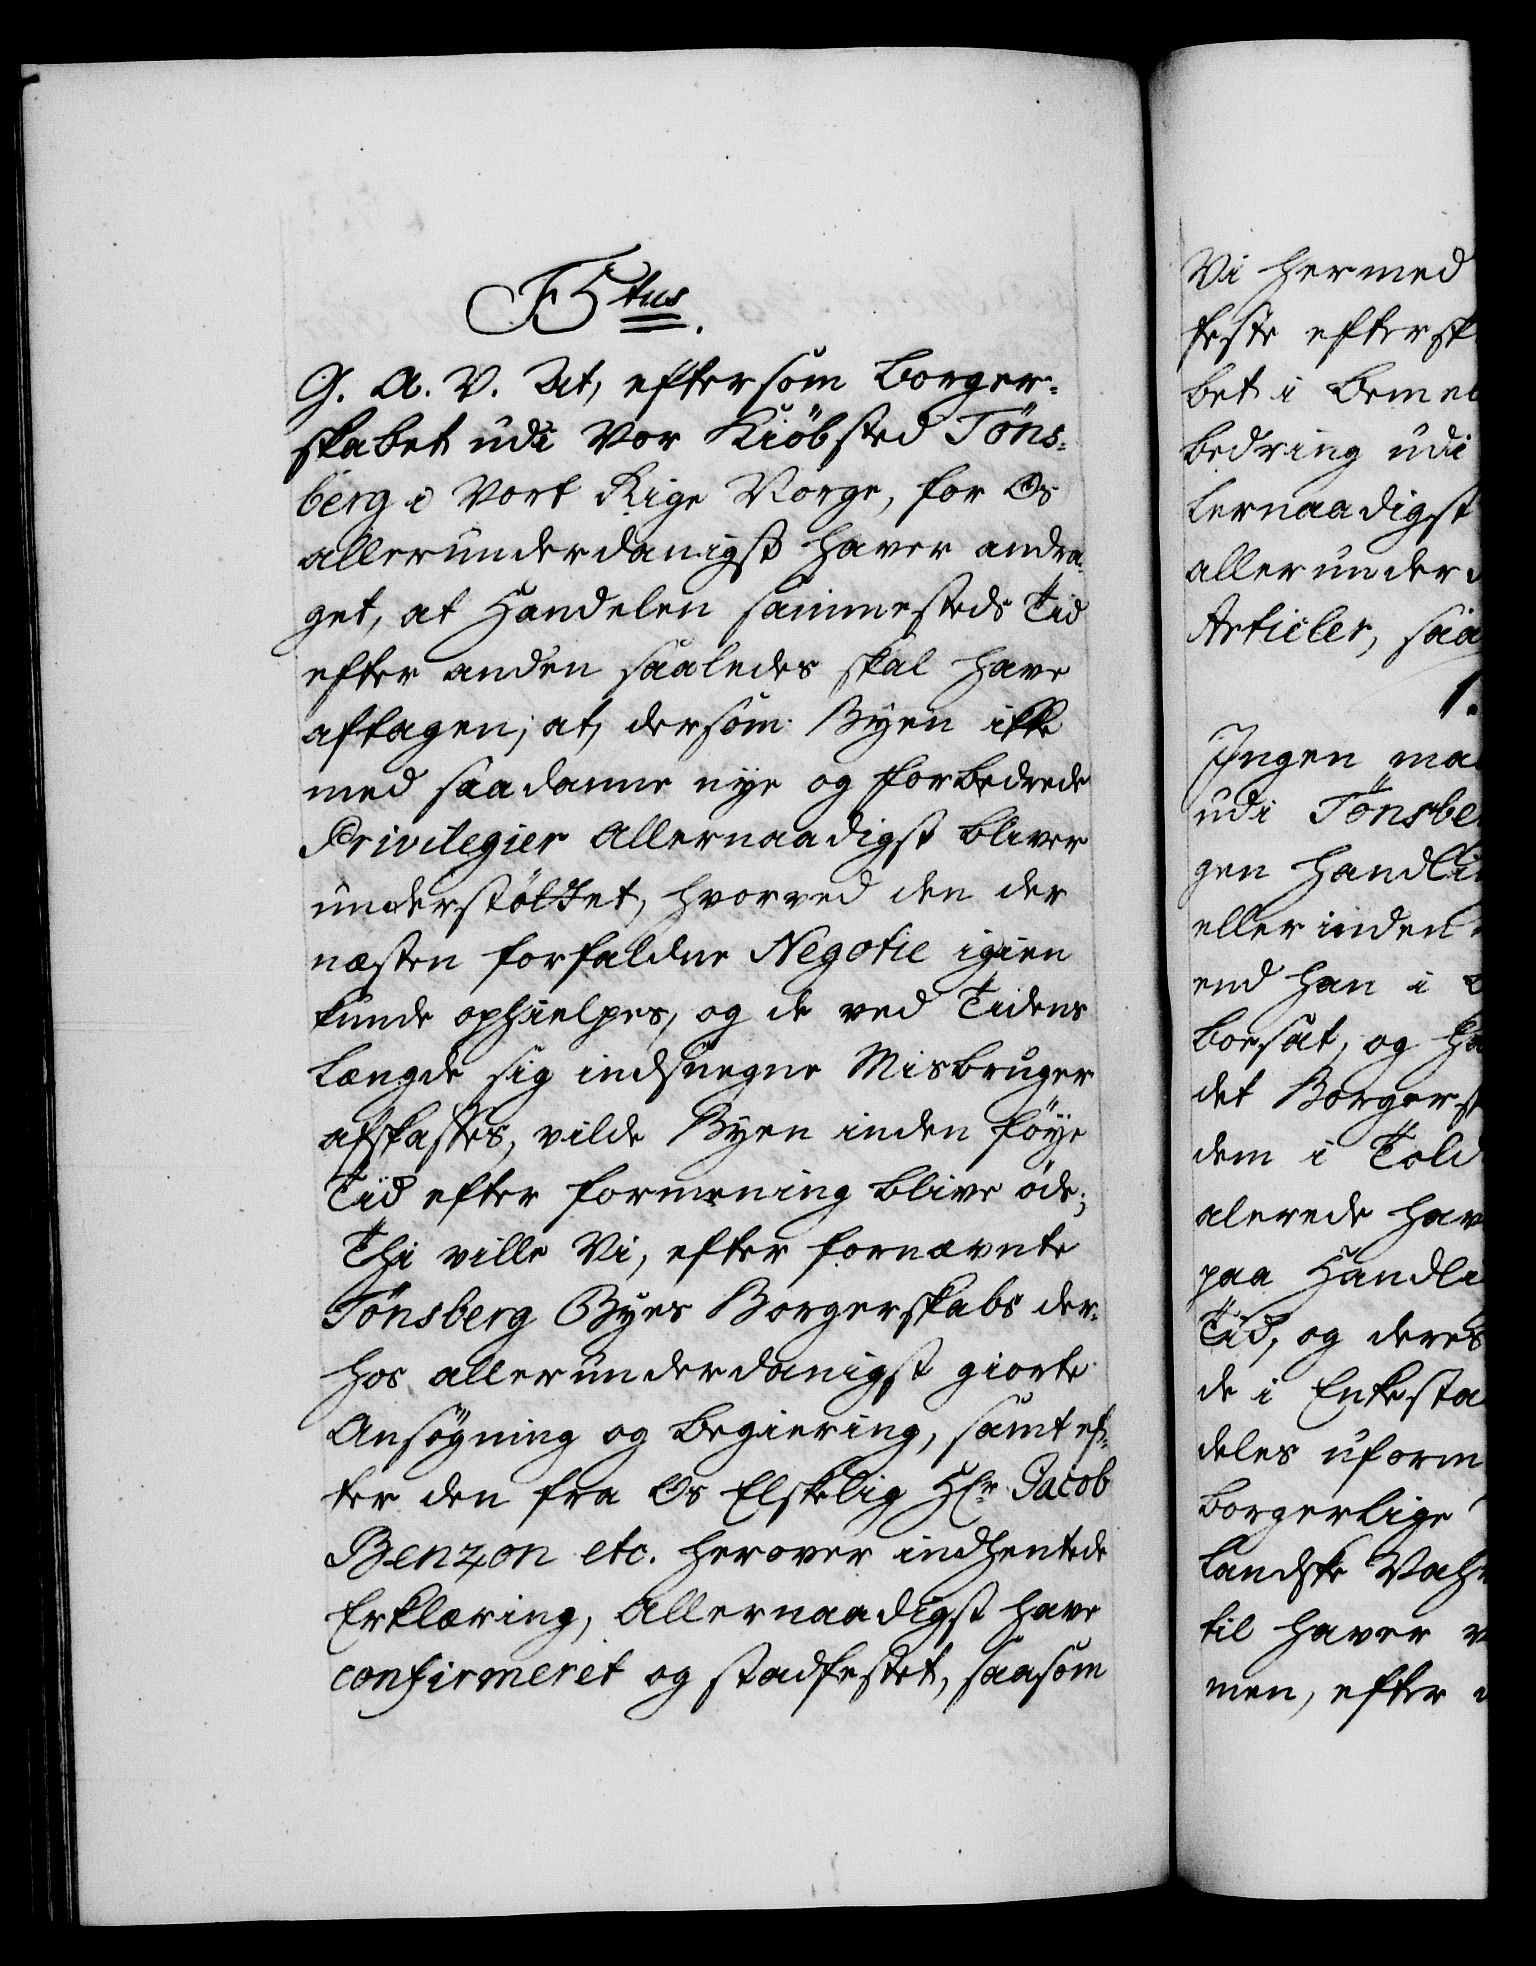 F5tus.
G. A. V. At, eftersom Borger-
skabet udi Vor Kiöbsted Töns-
berg i Vort Rige Norge, for Os
allerunderdanigst haver andra-
get, at Handelen sammesteds Tid
efter anden saaledes skal have
aftagen; at, dersom Byen ikke
med saadanne nye og forbedrede
Privilegier Allernaadigst bliver
understöttet, hvorved den der
næsten forfaldne Negotie igien
kunde ophielpes, og de ved Tidens
Længde sig indsnegne Misbruger
afskaffes, vilde Byen inden föye
Tid efter formening blive öde;
Thi ville Vi, efter fornævnte
Tönsberg Byes Borgerskabs der-
hos allerunderdanigst giorte
Ansögning og begiering, samt ef-
ter den fra Os Elskelig Hr. Jacob
Benzon etc. herover indhentede
Erklæring, Allernaadigst have
confirmeret og stadfestet, saasom
Vi hermed
feste eftersk
bet i bemel
bedring udi
lernaadigst
allerunderd
Articler, saa
1.
Ingen maa
udi Tönsber
gen Handli
eller inden
end han i B
boesat, og ha
det Borgersk
dem i Told
alerede hav
paa Handle
Tid, og deres
de i Enkesta
deles uform
borgerlige
landske Vahr
til haver v
men, efter